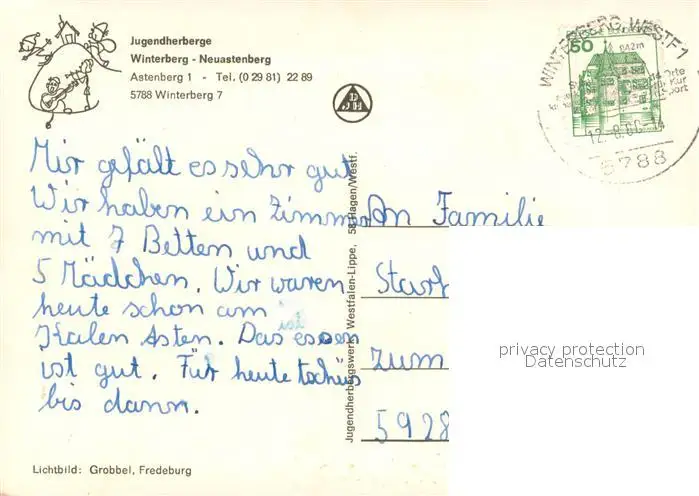 Jugendherberge
Winterberg - Neuastenberg
Astenberg 1 - Tel. (0 29 81) 22 89
5788 Winterberg 7
DJH
50
WINTERBERG, WESTF 1
842m
Orte
Kur
Sport
5788
Mir gefält es sehr gut
Wir haben ein Zimmer
mit 7 Betten und
5 Mädchen. Wir waren
heute schon am
Kalen Asten. Das essen
ist
ist gut. Für heute tschüs
bis dann.
Jugendherbergswerk Westfalen-Lippe, 58 Hagen/Westf.
An Familie
Start
zum
5928
privacy protection
Datenschutz
Lichtbild: Grobbel, Fredeburg